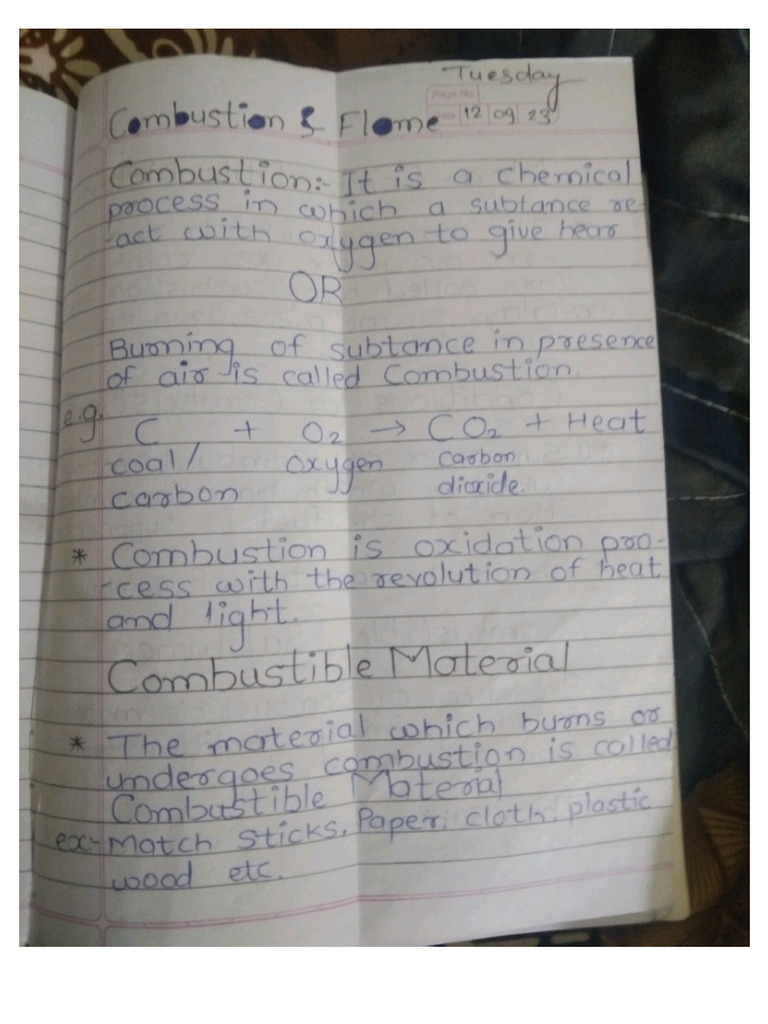 Tuesday
Page No.
Combustion & Flame
Date 12 09 23
Combustion:- It is a chemical
process in which a subtance re-
-act with oxygen to give hear
OR
Burning of subtance in presence
of air is called Combustion.
e.g. C + O2 → CO2 + Heat
coal/ oxygen carbon
carbon dioxide.
* Combustion is oxidation pro-
-cess with the revolution of heat
and light.
Combustible Material
* The material which burns or
undergoes combustion is called
Combustible Material
ex:- Match sticks, Paper, cloth, plastic
wood etc.